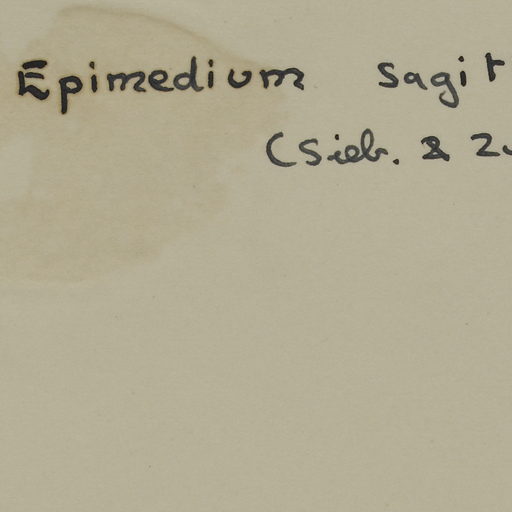 Epimedium sagit
(Sieb. & Zu